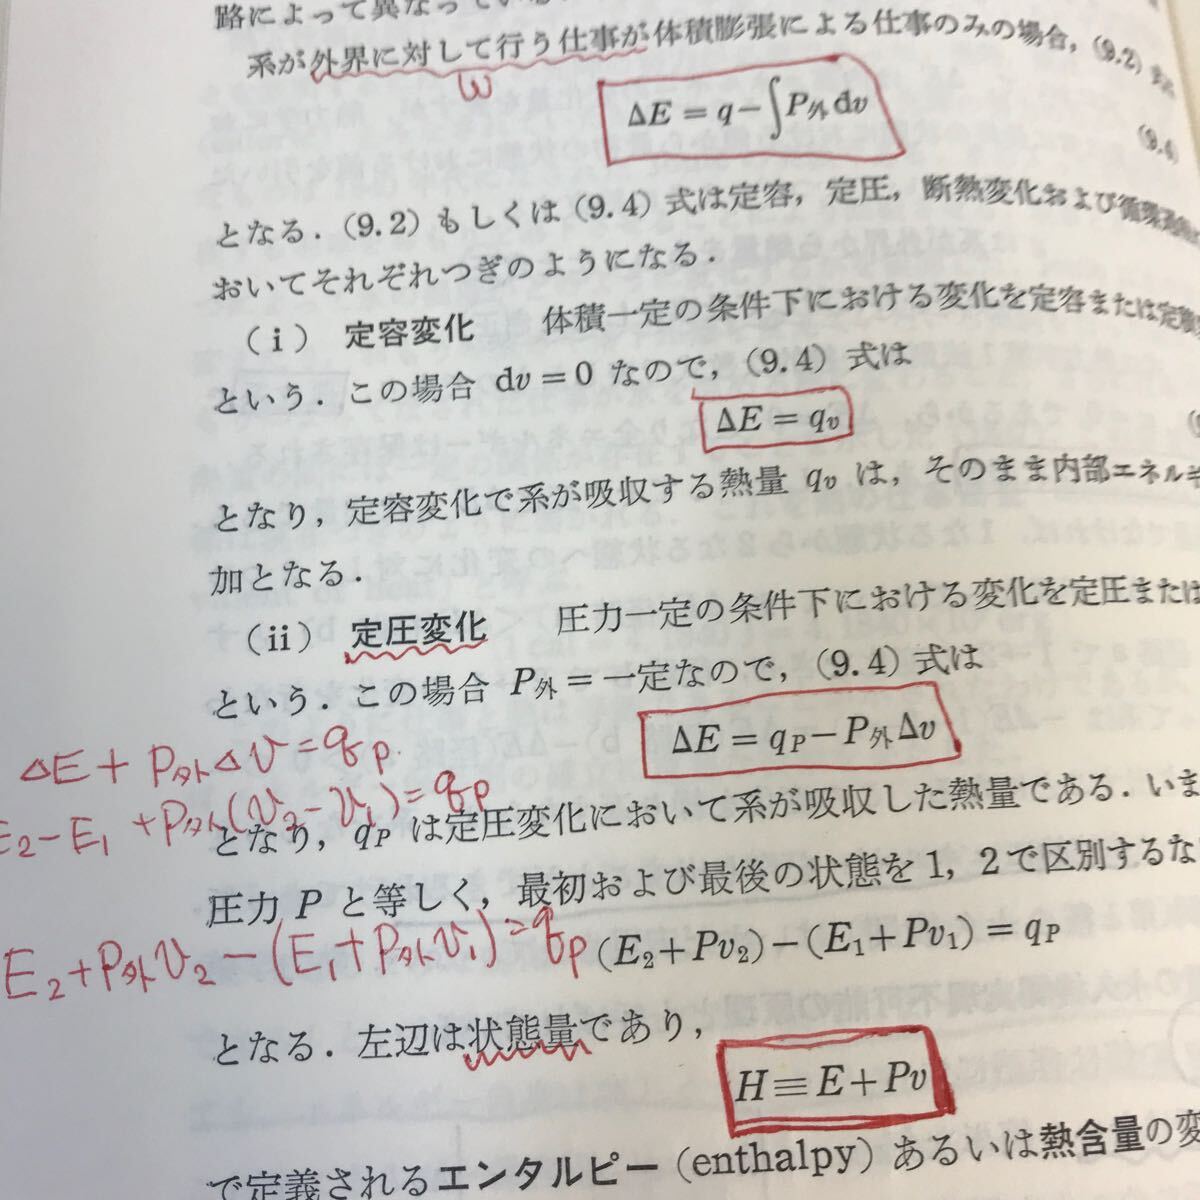 路によって異なっている
系が外界に対して行う仕事が体積膨張による仕事のみの場合，(9.2)
w
ΔE = q − ∫P外 dv
(9.4)
となる．(9.2) もしくは (9.4) 式は定容，定圧，断熱変化および循環
おいてそれぞれつぎのようになる．
(i) 定容変化 体積一定の条件下における変化を定容または定積
という．この場合 dv = 0 なので，(9.4) 式は
ΔE = qv
となり，定容変化で系が吸収する熱量 qv は，そのまま内部エネルギ
加となる．
(ii) 定圧変化 圧力一定の条件下における変化を定圧または
という．この場合 P外 = 一定なので，(9.4) 式は
ΔE = qP − P外Δv
ΔE + P外Δv = qp.
E2 − E1 + P外(v2 − v1) = qp
となり，qP は定圧変化において系が吸収した熱量である．いま
圧力 P と等しく，最初および最後の状態を 1，2 で区別するな
E2 + P外v2 − (E1 + P外v1) = qp
(E2 + Pv2) − (E1 + Pv1) = qP
となる．左辺は状態量であり，
H ≡ E + Pv
で定義されるエンタルピー (enthalpy) あるいは熱含量の変